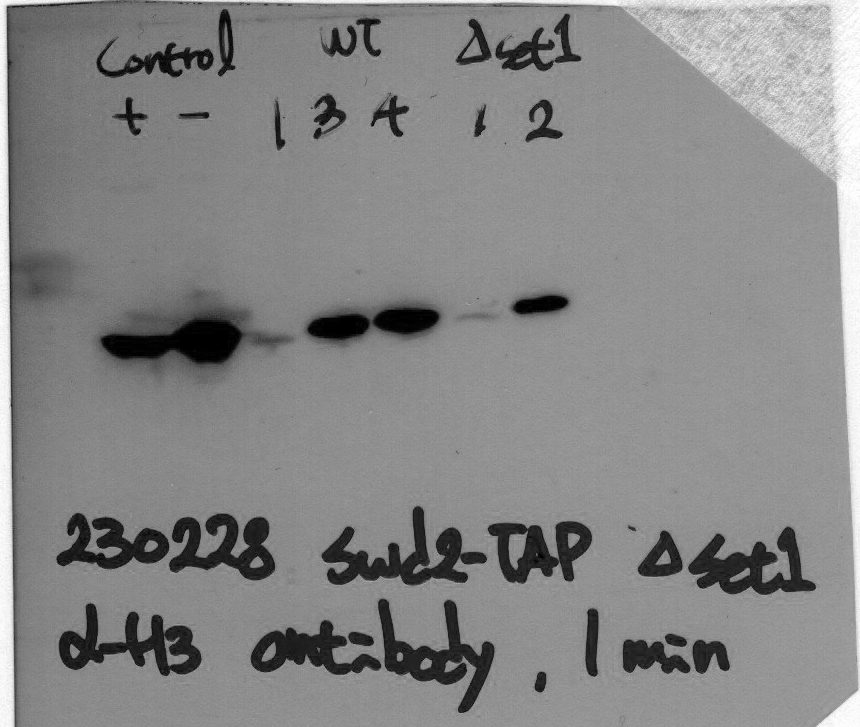 Control WT Δset1
+ - 1 3 4 1 2
230228 Swd2-TAP Δset1
α-H3 antibody, 1 min